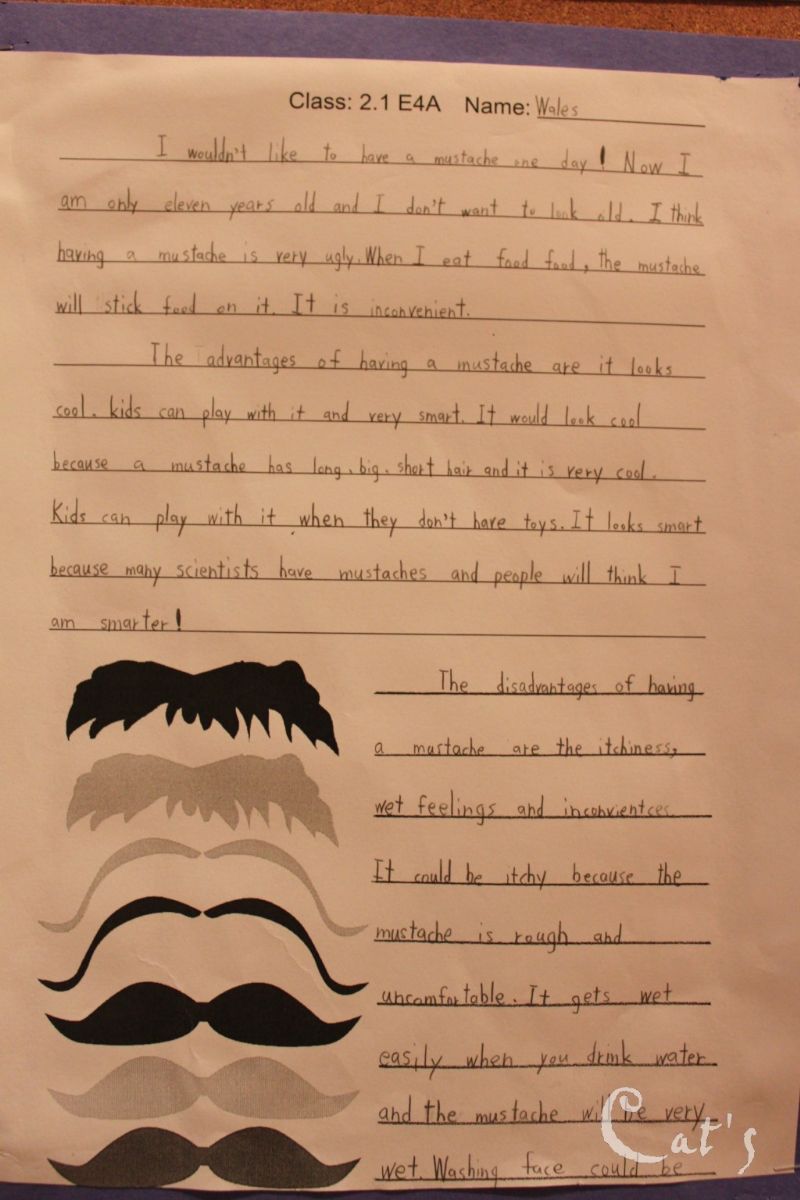 Class: 2.1 E4A Name: Wales
I wouldn't like to have a mustache one day! Now I
am only eleven years old and I don't want to look old. I think
having a mustache is very ugly. When I eat food food, the mustache
will stick food on it. It is inconvenient.
The advantages of having a mustache are it looks
cool. kids can play with it and very smart. It would look cool
because a mustache has long, big, short hair and it is very cool.
Kids can play with it when they don't have toys. It looks smart
because many scientists have mustaches and people will think I
am smarter!
The disadvantages of having
a mustache are the itchiness,
wet feelings and inconvientces
It could be itchy because the
mustache is rough and
uncomfortable. It gets wet
easily when you drink water
and the mustache will be very
wet. Washing face could be
Cat's